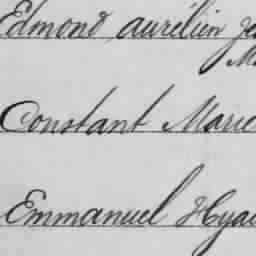 Edmond aurélien
Constant Marie
Emmanuel